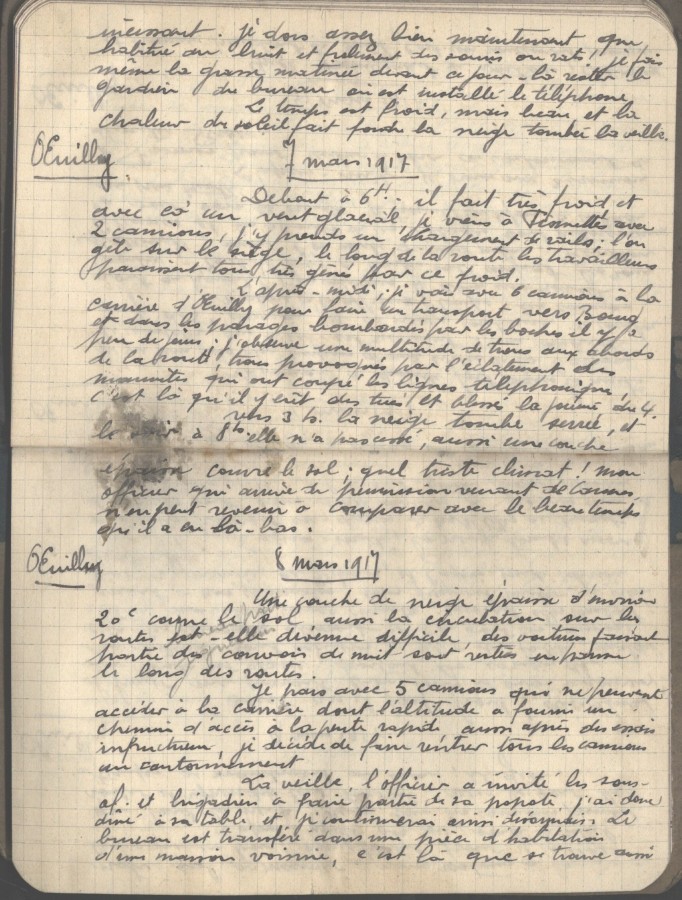 incessant. je dors assez bien maintenant que
habitué au bruit et frolement des souris ou rats, je fais
même la grasse matinée devant ce jour-là rester le
gardien du bureau où est installé le téléphone.
Le temps est froid, mais beau, et la
chaleur du soleil fait fondre la neige tombée la veille.
Œuilly 7 mars 1917
Debout à 6H; il fait très froid, et
avec ça un vent glacial, je vais à avec
2 camions, j'y prends un chargement de rails; l'on
gèle sur le siège, le long de la route les travailleurs
paraissent tous très gênés par ce froid.
L'après-midi, je vais avec 6 camions à la
carrière d'Œuilly pour faire un transport vers Bourg
et dans les parages bombardés par les boches il y a
peu de jours; j'observe une multitude de trous aux abords
de la route, trous provoqués par l'éclatement des
marmites qui ont coupé les lignes téléphoniques,
c'est là qu'il y eut des tués et blessés la du 4.
vers 3 h. la neige tombe serrée, et
le soir à 8h elle n'a pas cessé, aussi une couche
épaisse couvre le sol; quel triste climat! mon
officier qui arrive de permission venant de Cannes
n'en peut revenir à comparer avec le beau temps
qu'il a eu là-bas.
Œuilly 8 mars 1917
Une couche de neige épaisse d'environ
20c couvre le sol aussi la circulation sur les
routes est-elle devenue difficile, des voitures faisant
partie des convois de nuit sont restées en panne
le long des routes.
Je pars avec 5 camions qui ne peuvent
accéder à la carrière dont l'altitude a fourni un
chemin d'accès à la pente rapide aussi après des essais
infructueux, je décide de faire rentrer tous les camions
au cantonnement
La veille, l'officier a invité les sous-
of. et brigadiers à faire partie de sa popote, j'ai donc
diné à sa table et j'y continuerai ainsi désormais. Le
bureau est transféré dans une pièce d'habitation
d'une maison voisine, c'est là que se trouve aussi